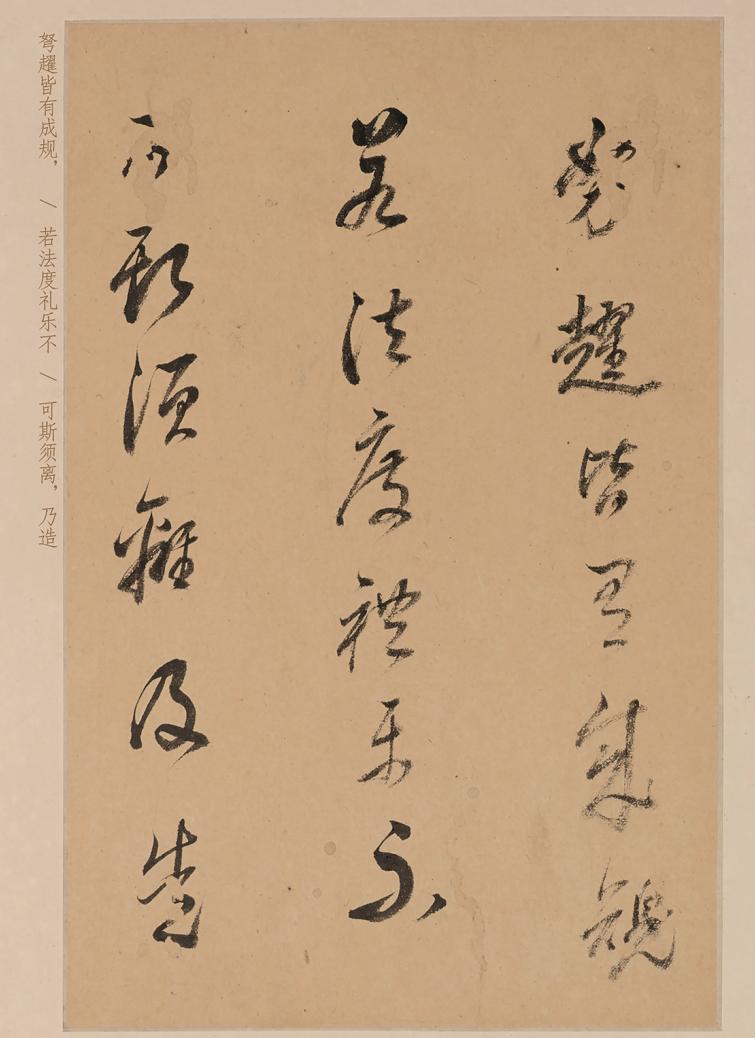 弩趯皆有成規
若法度禮樂不
可斯須離及造
弩趯皆有成规，/ 若法度礼乐不 / 可斯须离，乃造